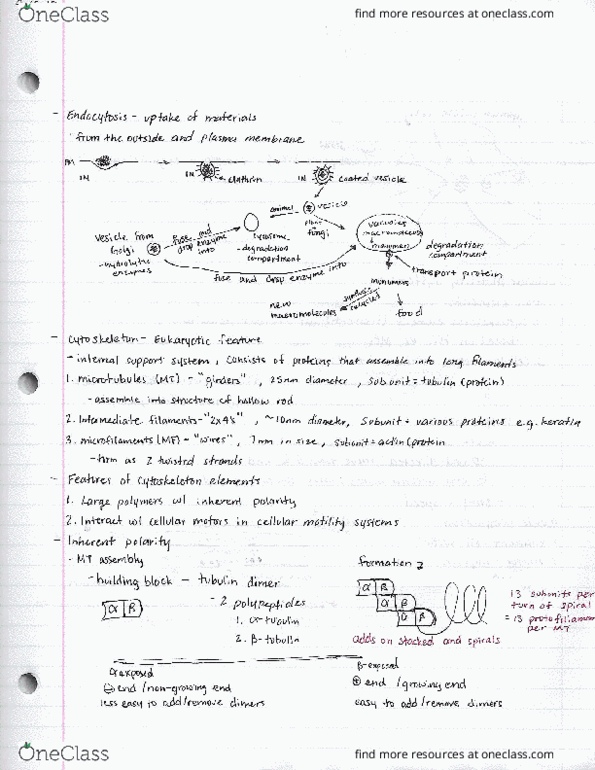 OneClass
find more resources at oneclass.com
- Endocytosis - uptake of materials
from the outside and plasma membrane
PM
IN
IN
clathrin
IN
coated vesicle
vesicle
animal
plant
fungi
vesicle from
Golgi
- hydrolytic
enzymes
fuse and
drop enzyme
into
lysosome
- degradation
compartment
vacuole
macromolecules
degradation
compartment
fuse and drop enzyme into
transport protein
monomers
synthesis
new
macromolecules
food
- Cytoskeleton - Eukaryotic feature
- internal support system, consists of proteins that assemble into long filaments
1. microtubules (MT) - "girders", 25nm diameter, subunit = tubulin (protein)
- assemble into structure of hollow rod
2. Intermediate filaments - "2x4's", ~10nm diameter, subunit = various proteins e.g. keratin
3. microfilaments (MF) - "wires", 7mm in size, subunit = actin (protein
- form as 2 twisted strands
- Features of cytoskeleton elements
1. Large polymers w/ inherent polarity
2. Interact w/ cellular motors in cellular motility systems
- Inherent polarity
- MT assembly
- building block - tubulin dimer
α β
- 2 polypeptides
1. α-tubulin
2. β-tubulin
formation 2
α β
α β
α β
13 subunits per
turn of spiral
= 13 protofilament
per MT
adds on stacked and spirals
α exposed
⊖ end / non-growing end
less easy to add/remove dimers
β-exposed
⊕ end / growing end
easy to add/remove dimers
OneClass
find more resources at oneclass.com